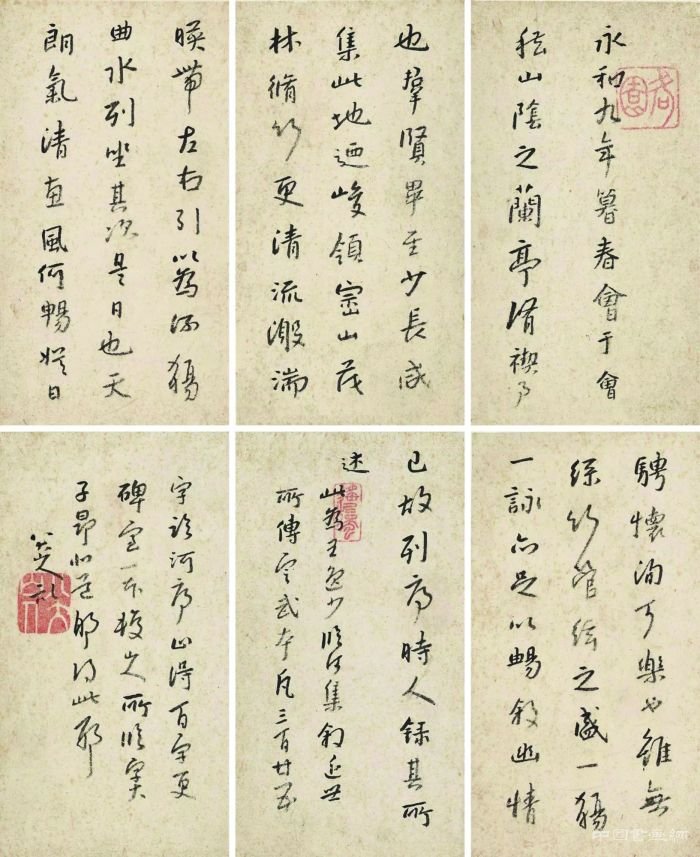 永和九年暮春會于會
稽山陰之蘭亭脩禊事
也羣賢畢至少長咸
集此地迺峻領崇山茂
林脩竹更清流激湍
暎帶左右引以為流觴
曲水列坐其次是日也天
朗氣清惠風何暢娛目
騁懷洵可樂也雖無
絲竹管絃之盛一觴
一詠亦足以暢敘幽情
已故列序時人錄其所
述
此為王逸少臨河集敘近世
所傳定武本凡三百廿五
字臨河序止得百字更
碑一本所臨
子昂得此耶